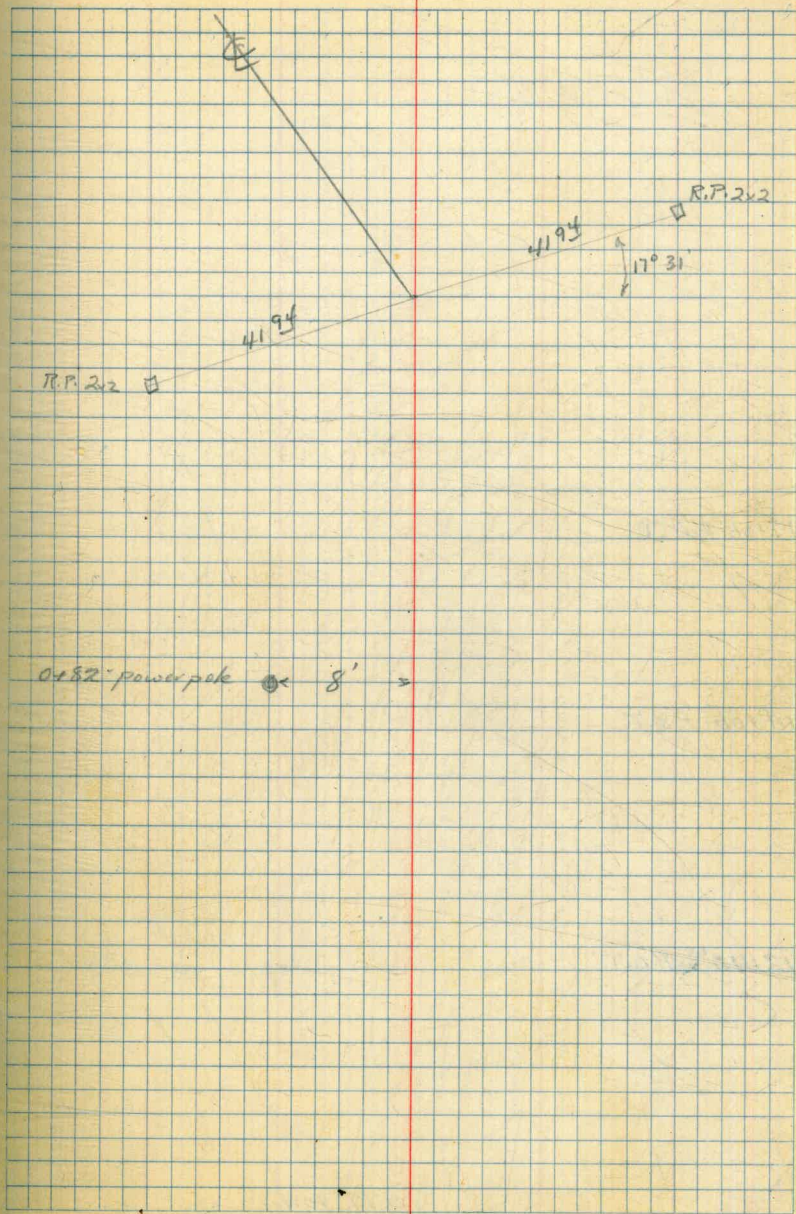 ℄
R.P. 2x2
41 94
17° 31'
41 94
R.P. 2x2
0+82 - power pole 8'